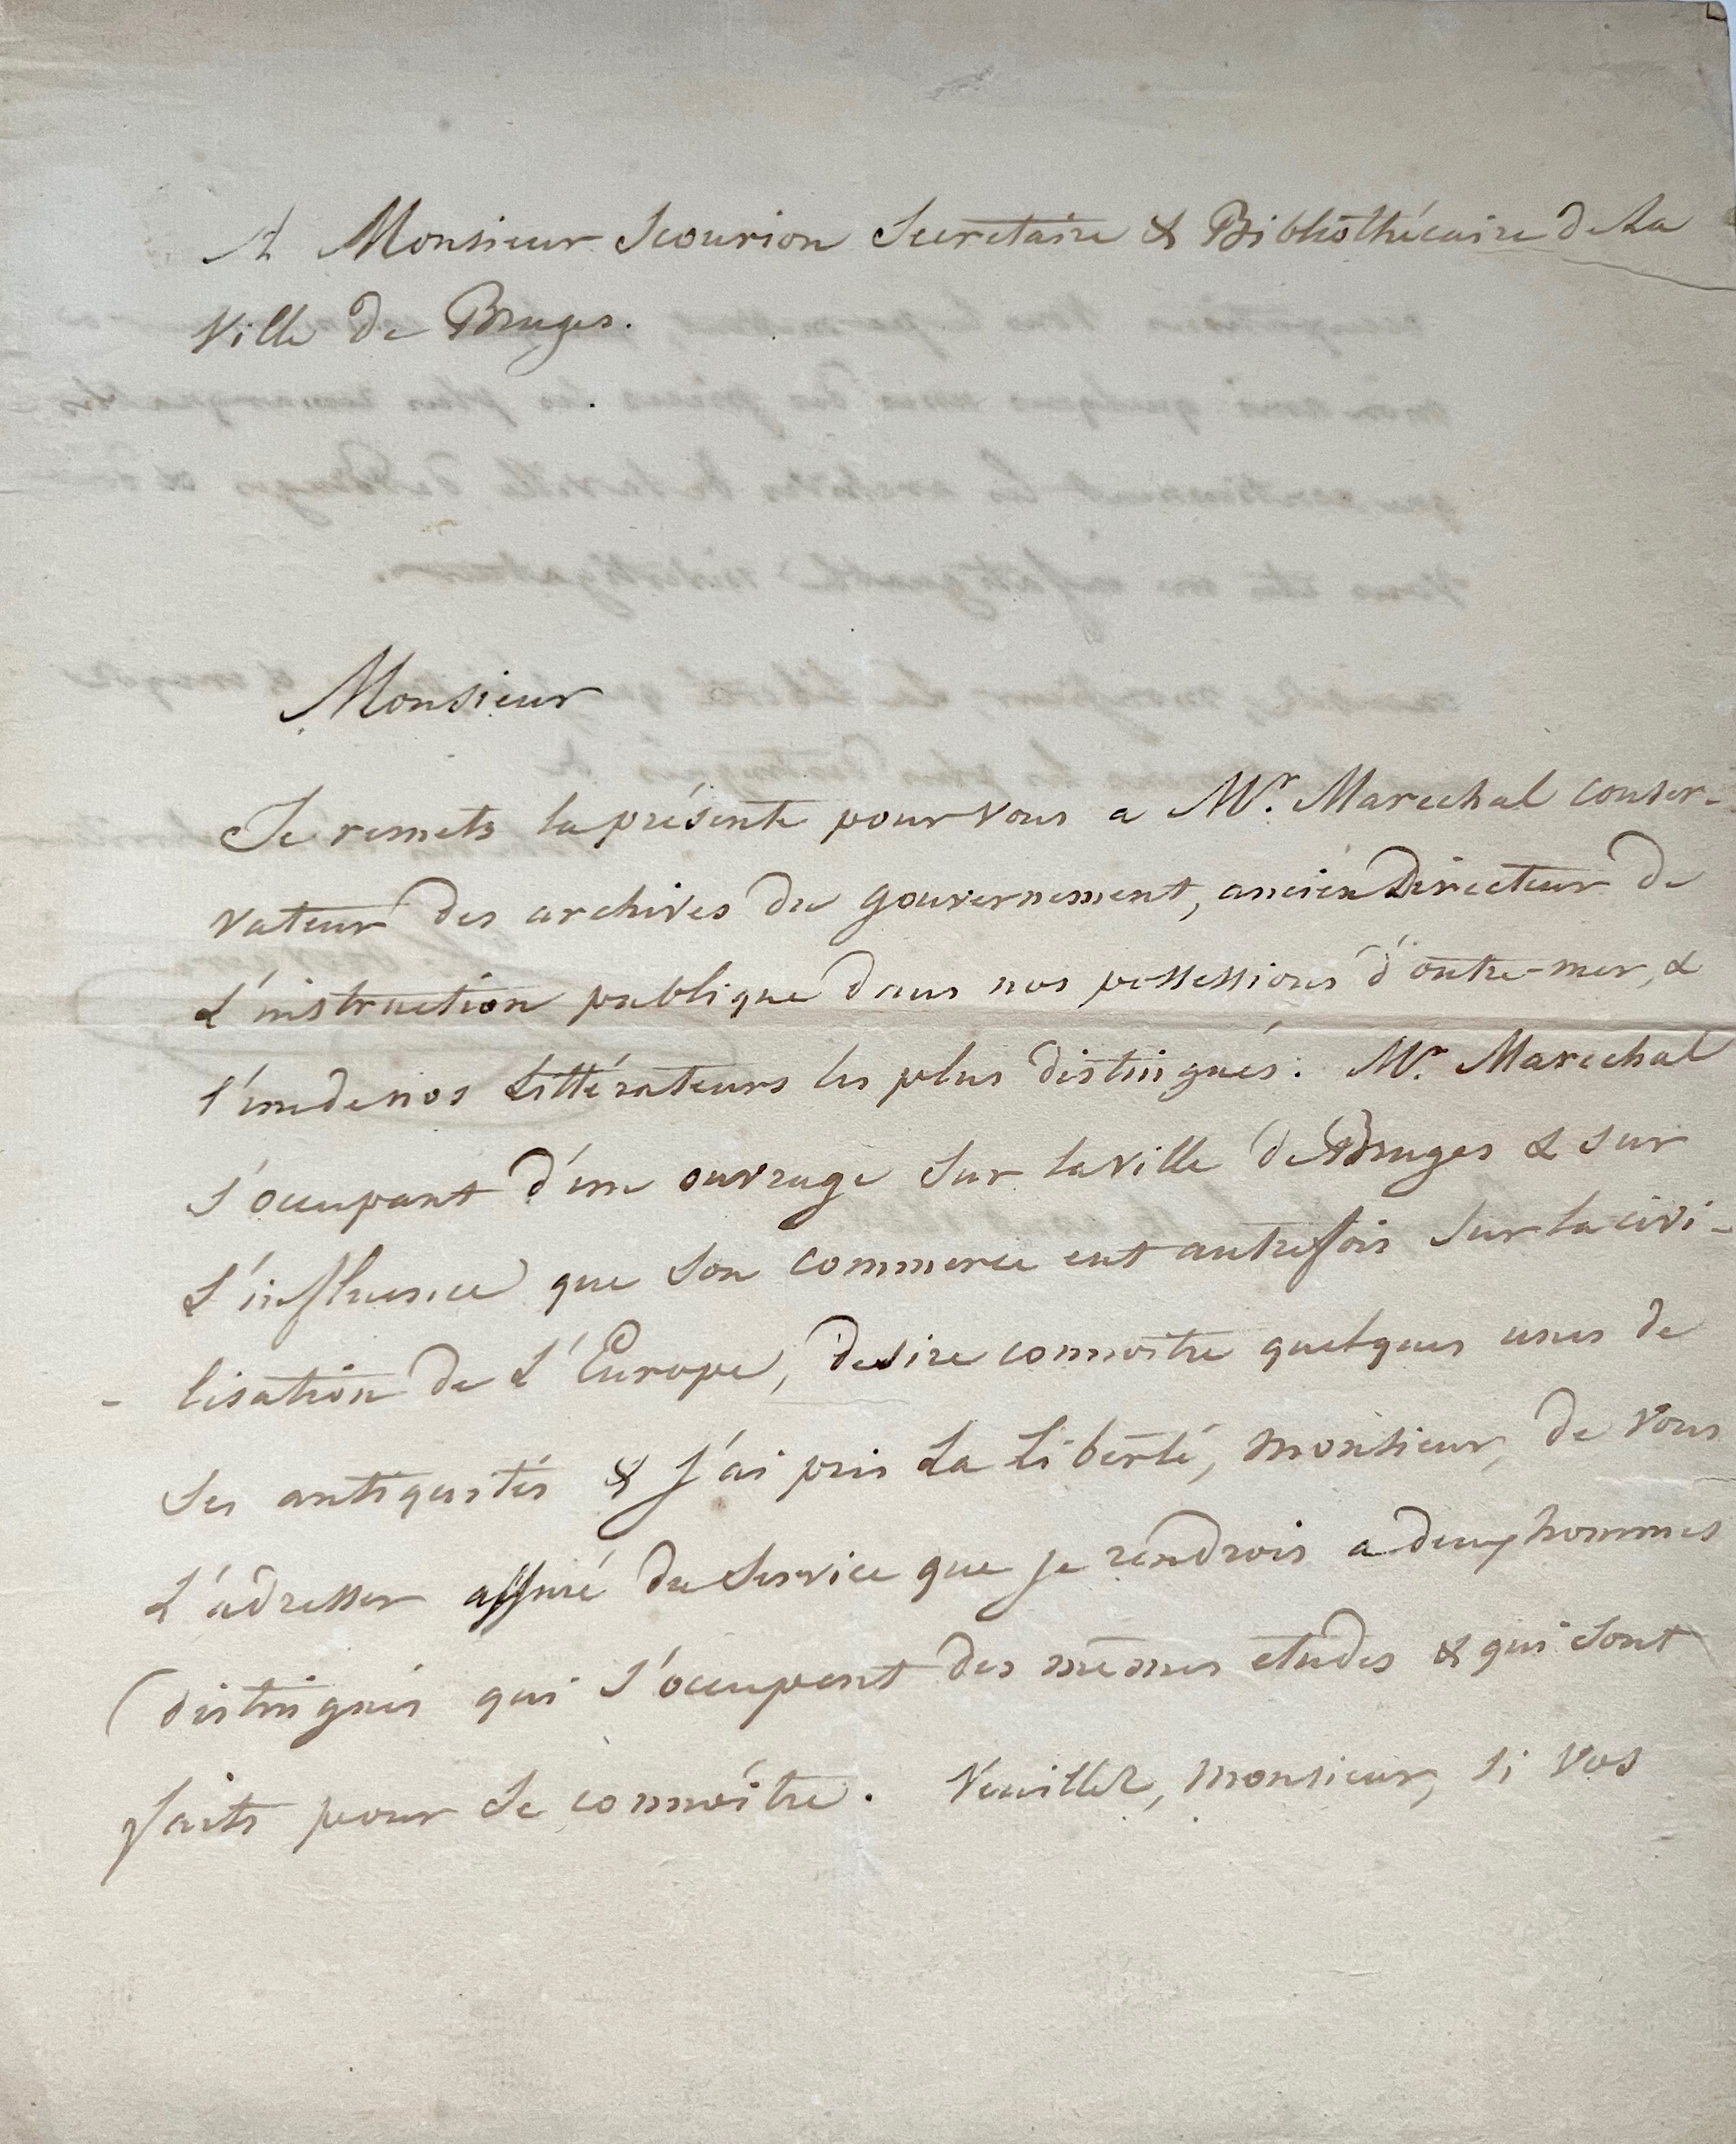 A Monsieur Scourion Secretaire & Bibliothécaire de la
Ville de Bruges.
Monsieur
Je remets la présente pour vous a Mr. Marechal conser-
vateur des archives du gouvernement, ancien Directeur de
L'instruction publique dans nos possessions d'outre-mer, &
l'un de nos Littérateurs les plus distingués. Mr. Marechal
s'occupant d'un ouvrage sur la ville de Bruges & sur
L'influence que son commerce eut autrefois sur la civi-
- lisation de L'Europe, desire connoitre quelques unes de
ses antiquités & j'ai pris La Liberté, monsieur, de vous
L'adresser assuré du service que je rendrois a deux hommes
distingués qui s'occupent des mêmes etudes & qui sont
faits pour se connoître. Veuillez, monsieur, si vos